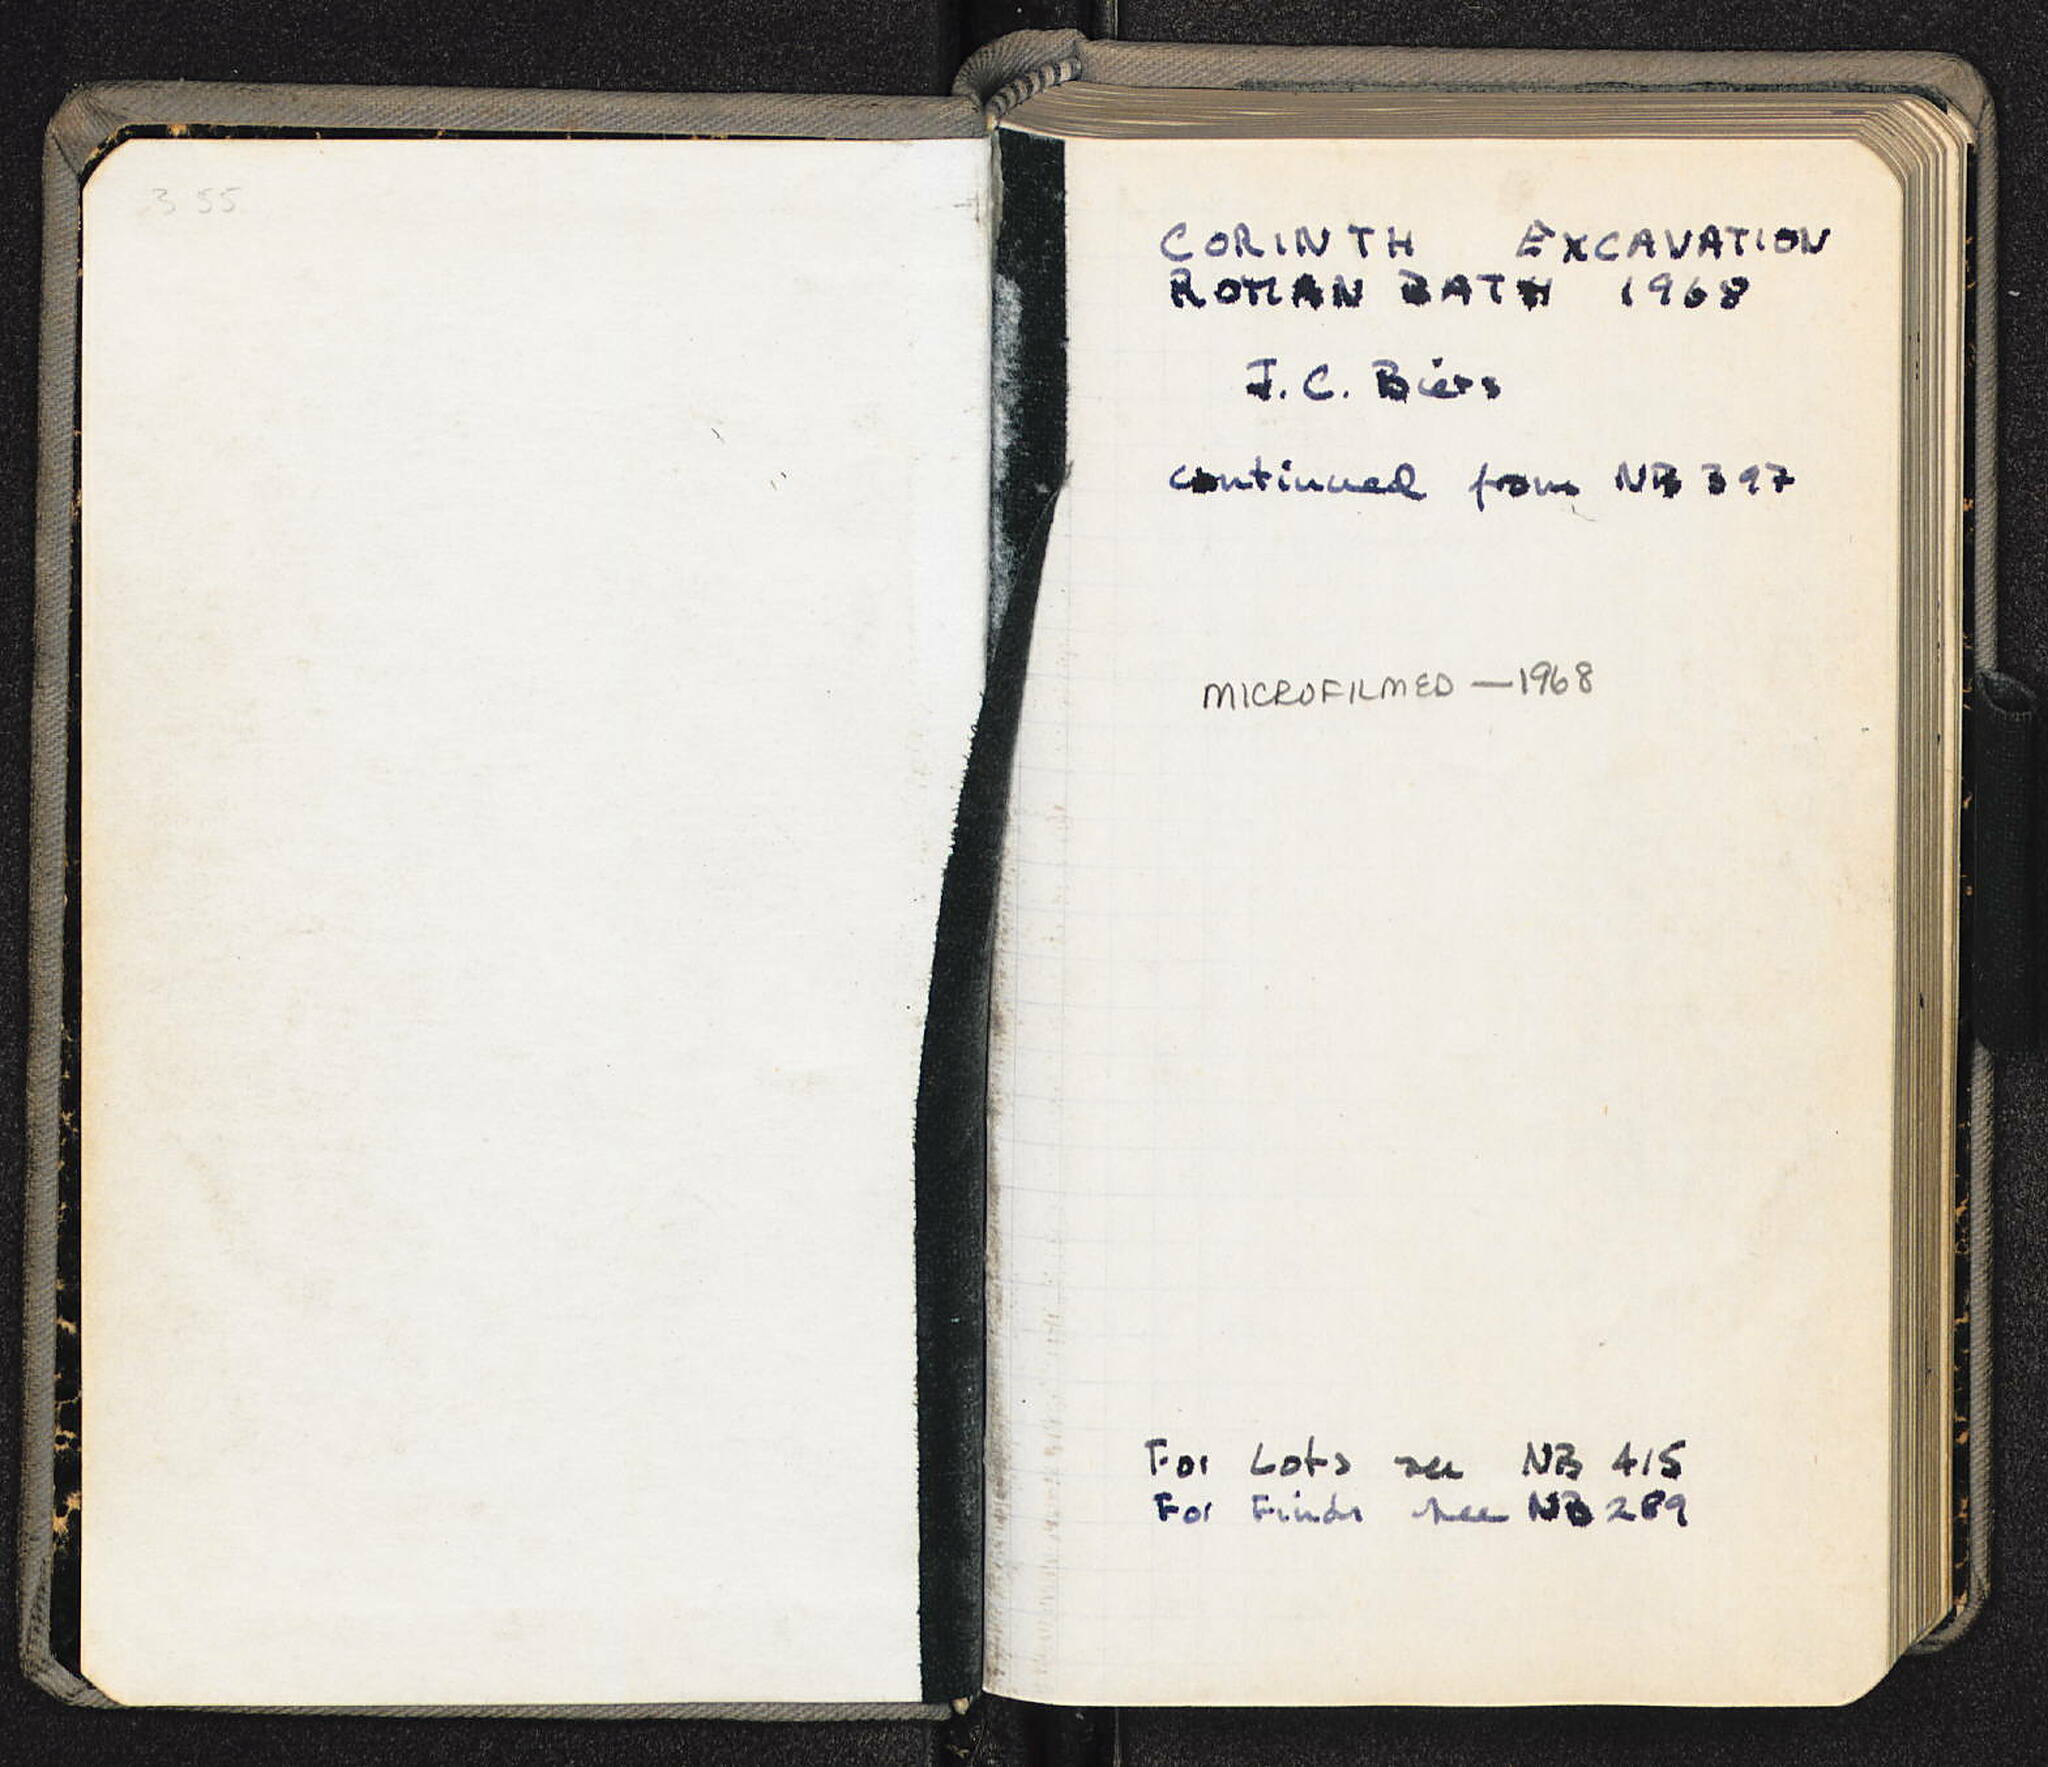 355
CORINTH EXCAVATION
ROMAN BATH 1968
J. C. Biers
continued from NB 397
MICROFILMED — 1968
For Lots see NB 415
For Finds see NB 289